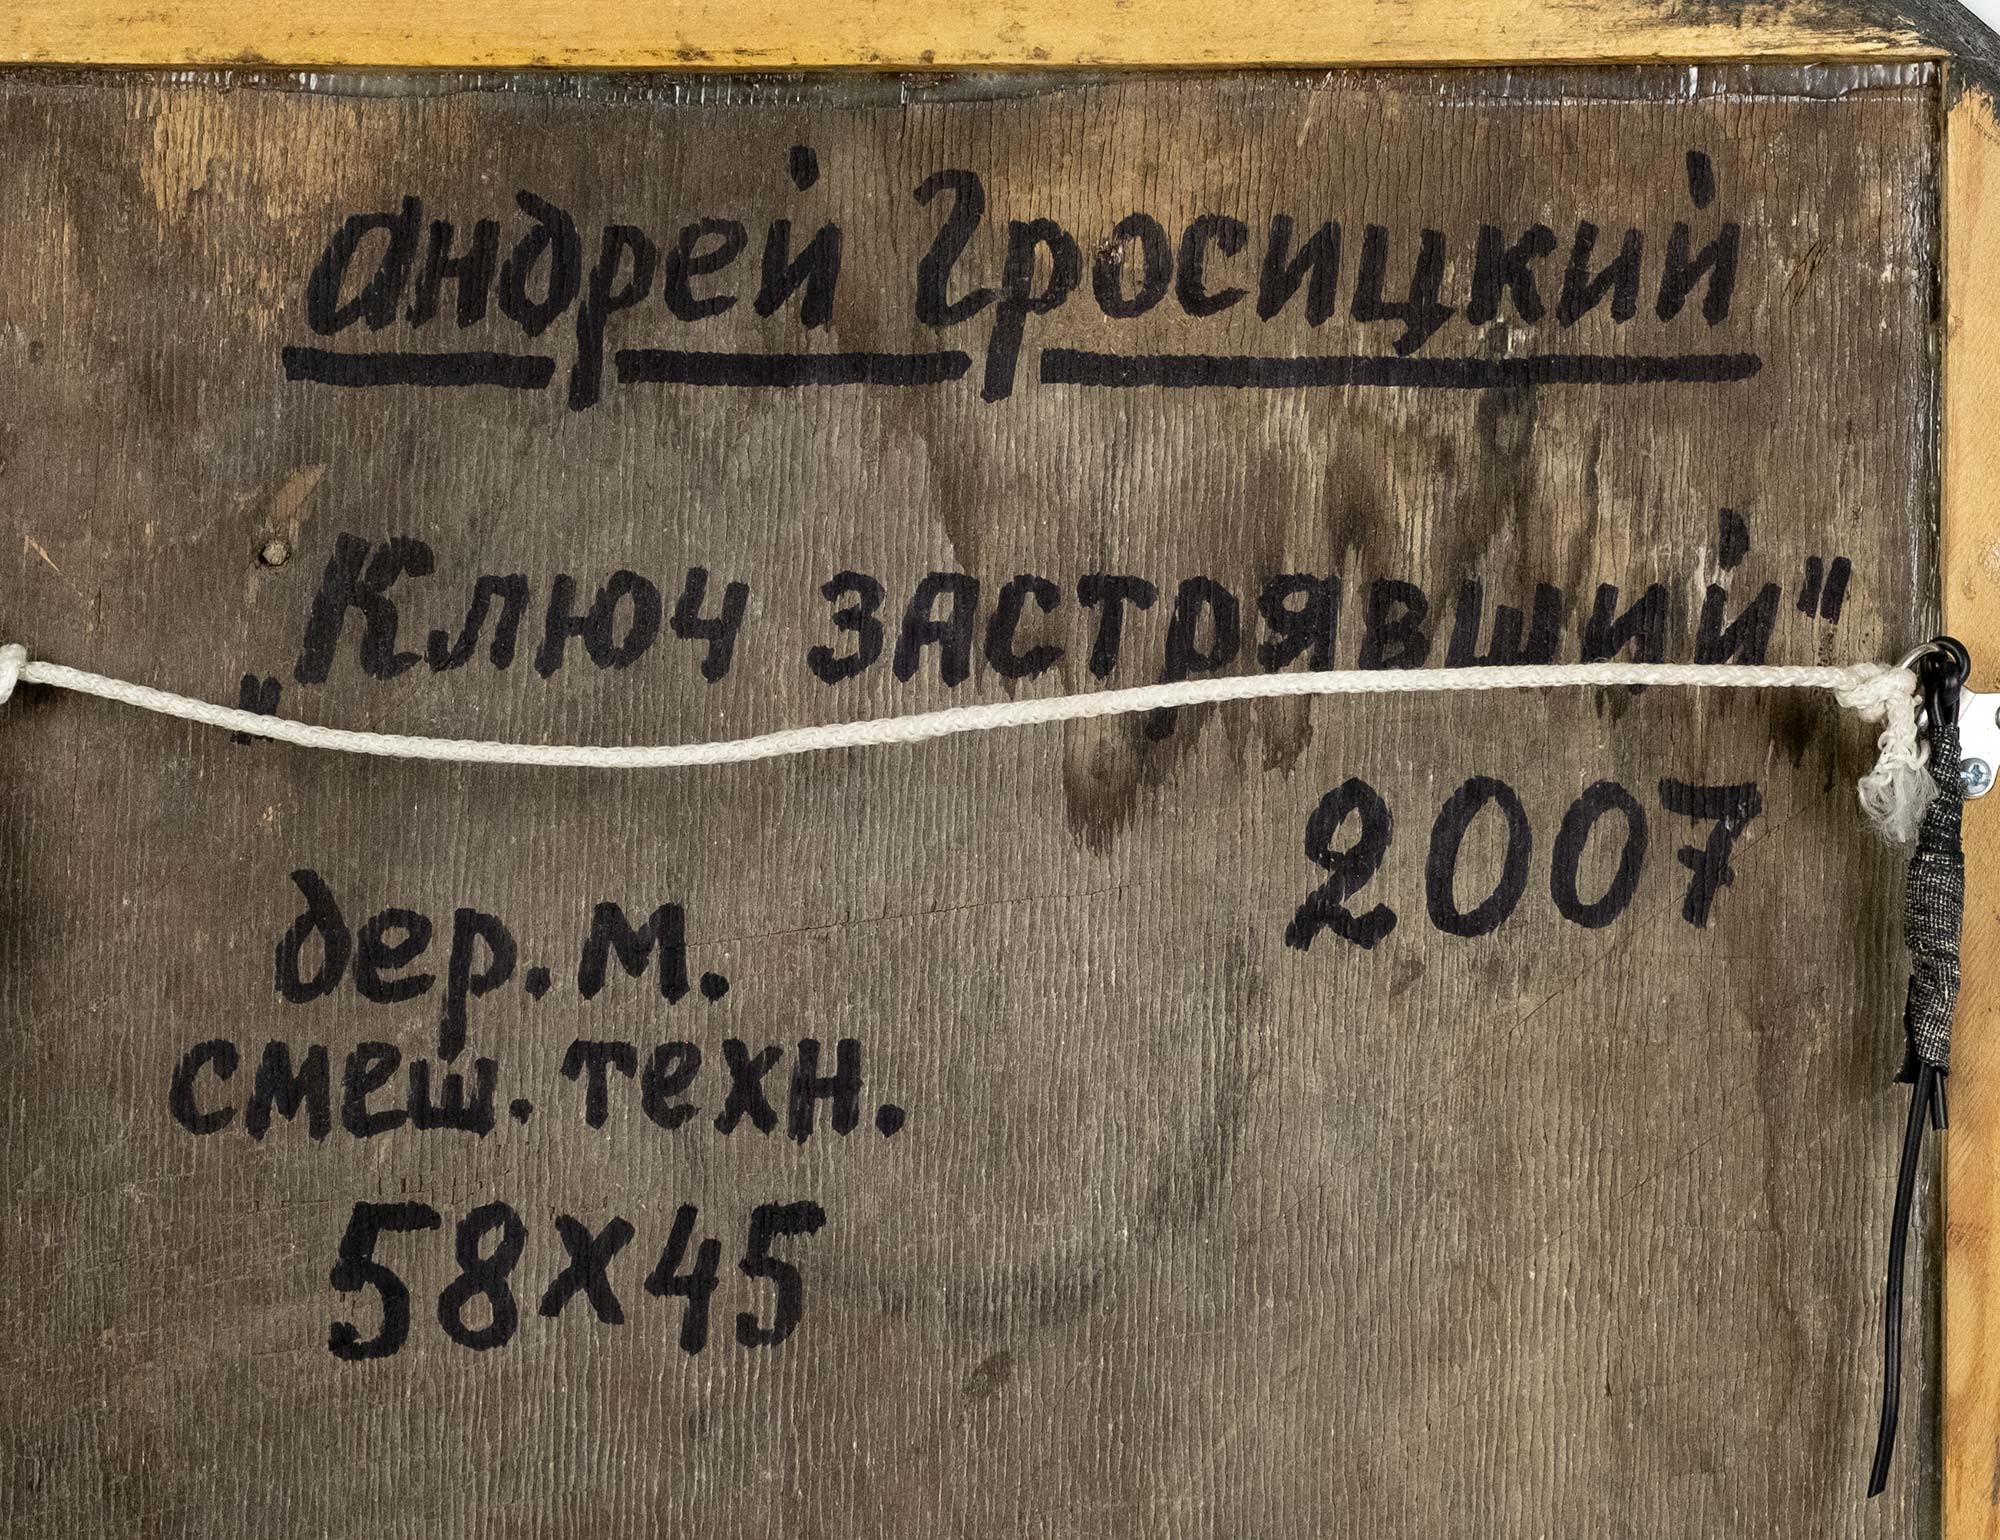 андрей Гросицкий
„Ключ застрявший"
2007
дер. м.
смеш. техн.
58x45